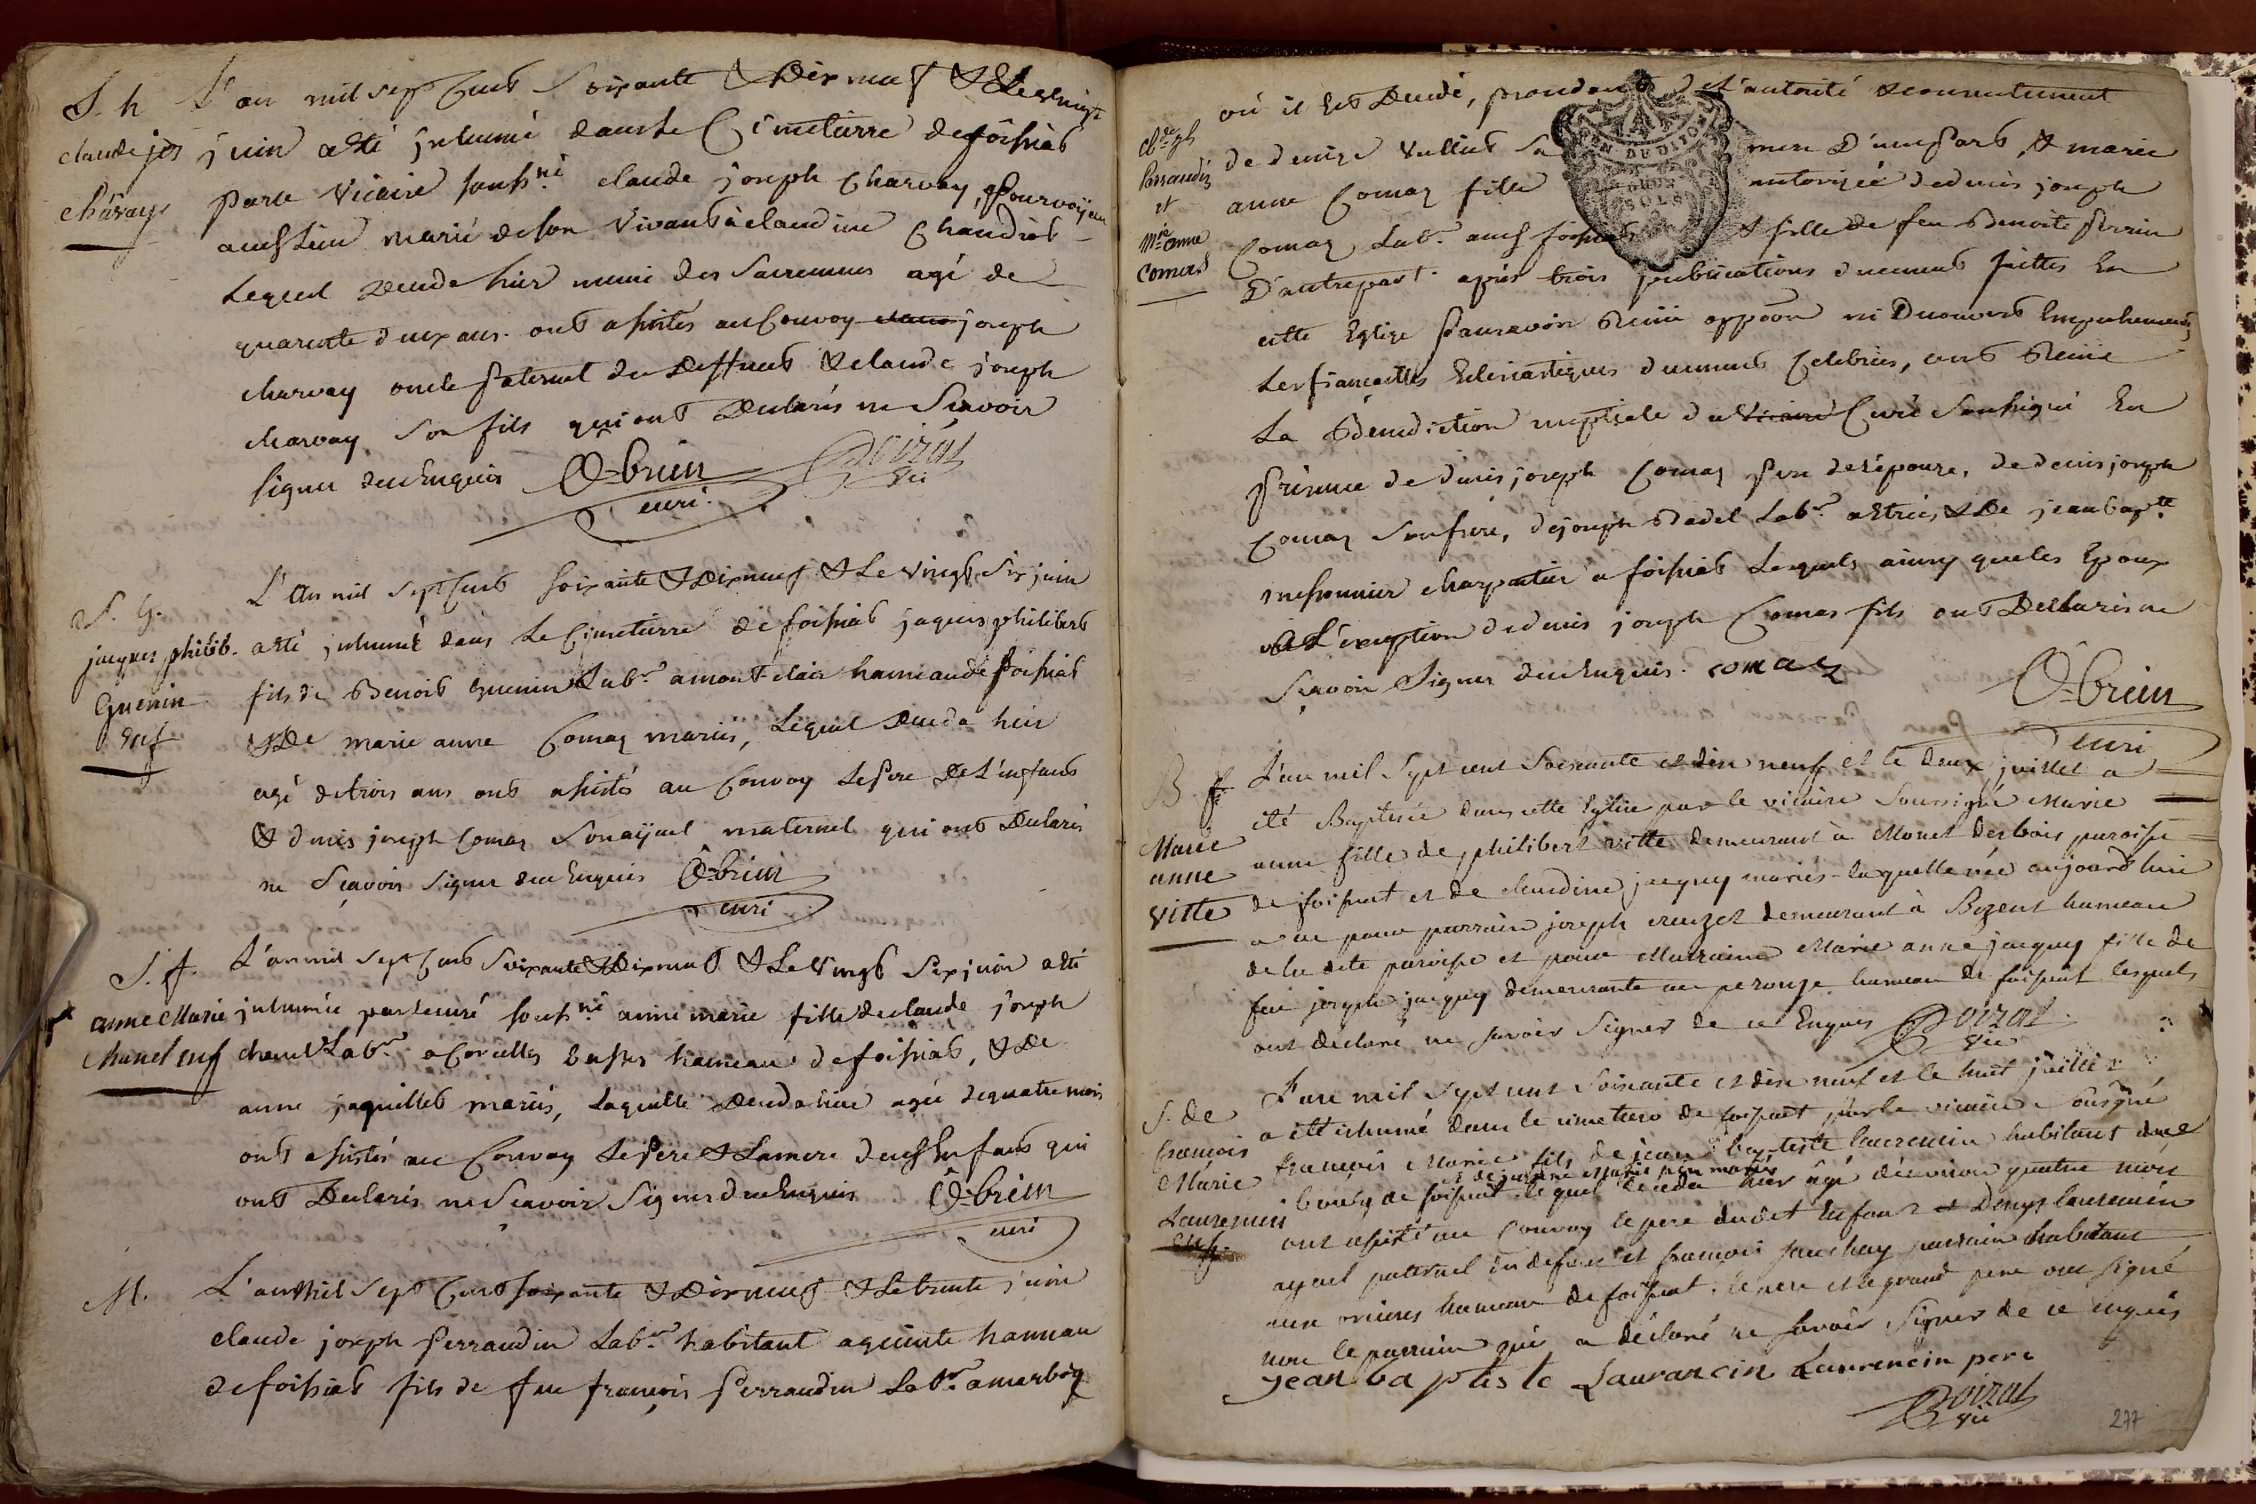 S. h
claude jos
charvay
L'an mil sept Cent Soixante & Dix neuf & Le vingt
juin a Eté jnhumé dans Le Cimetierre de foissiat
Par le Vicaire souss.né claude joseph Charvay,
aussi Lieu marié de son Vivant à claudine Chaudiot
Lequel Deceda hier muni des Sacremens agé de
quarente deux ans. ont assistés au Convoy joseph
charvay oncle Paternel du Deffunt & claude joseph
charvay son fils qui ont Declarés ne Scavoir
signer de ce Enquis O-brien Poizat
curé. vic
S. G.
jacques philib.
Guenin
Enf
L'An mil Sept Cent soixante & Dix neuf & Le Vingt Six juin
a Eté jnhumé dans Le Cimetierre de foissiat jaques philibert
fils de Benoit Guenin Lab.r a mont-clair hameau de foissiat
& De marie anne Comas mariés, Lequel Deceda hier
agé de trois ans ont assistés au Convoy Le Pere De L'enfant
& denis joseph Comas Son ayeul maternel qui ont Declarés
ne Sçavoir signer de ce Enquis O-brien
curé
S. f.
anne Marie
chanel enf
L'an mil Sept Cent Soixante & Dix neuf & Le Vingt Six juin a Eté
jnhumée par le curé souss.né anne marie fille de claude joseph
chanel Lab.r a Corcelles basses hameau de foissiat, & De
anne jaquillet mariés, Laquelle Deceda hier agée de quatre mois
ont assistés au Convoy Le Pere & La mere du Enfant qui
ont Declarés ne Scavoir Signer de ce Enquis O-brien
curé
M.
L'an Mil Sept Cent soixante & Dix neuf & Le trente juin
claude joseph Perraudin Lab.r habitant a hameau
de foissiat fils de feu françois Perraudin Lab.r a
cl.de jph
Perraudin
et
M.ie anne
Comas
où il Est Decedé, procedant de L'autorité & consentement
de denise Vulliet Sa mere D'une Part, & marie
anne Comas fille autorizée de denis joseph
Comas Lab.r & fille de feu Benoite Perrin
D'autre part. après trois publications duement faittes En
cette Eglise Sans avoir Recue oppôôn ni Decouvert Empechement,
Les fiançailles Eclesiastiques duement Celebrées, ont Recüe
La Bénédiction nuptiale du Vicaire Curé Soussigné En
Présence de denis joseph Comas Pere de l'épouze, de denis joseph
Comas Son frere, de joseph Badel Lab.r & De jean bap.te
charpentier a foissiat Lesquels ainsy que les Epoux
à L'exception de denis joseph Comas fils ont Declarés ne
Sçavoir Signer de ce Enquis. comas
O-brien
curé
B. f
Marie
anne
Vitte
L'an mil Sept cent Soixante et dix neuf et le deux juillet a
été Baptisée dans cette Eglise par le vicaire Soussigné Marie
anne fille de philibert vitte demeurant à Monet des bois paroisse
de foissiat et de claudine jacquy mariés - laquelle née aujourd'huy
a eu pour parrain joseph demeurant à Bizent hameau
de la dite paroisse et pour Marraine Marie anne jacquy fille de
feu joseph jacquy demeurante au perouze hameau de foissiat lesquels
ont declaré ne savoir Signer de ce Enquis Poizat
vic
S. de
françois
Marie
Laurencin
Enf.
L'an mil Sept cent Soixante et dix neuf et le huit juillet
a été inhumé dans le cimetiere de foissiat par le vicaire Sousigné
françois Marie fils de jean baptiste laurencin habitant au
bourg de foissiat lequel deceda hier âgé d'environ quatre mois
ont assisté au Convoy le pere dudit Enfant et Denys laurencin
ayeul paternel du defunt et françois parrain habitant
aux hameau de foissiat. le pere et le grand pere ont signé
non le parrain qui a déclaré ne savoir signer de ce enquis
jean baptiste Laurancin Laurencin pere
Poizat
vic
277